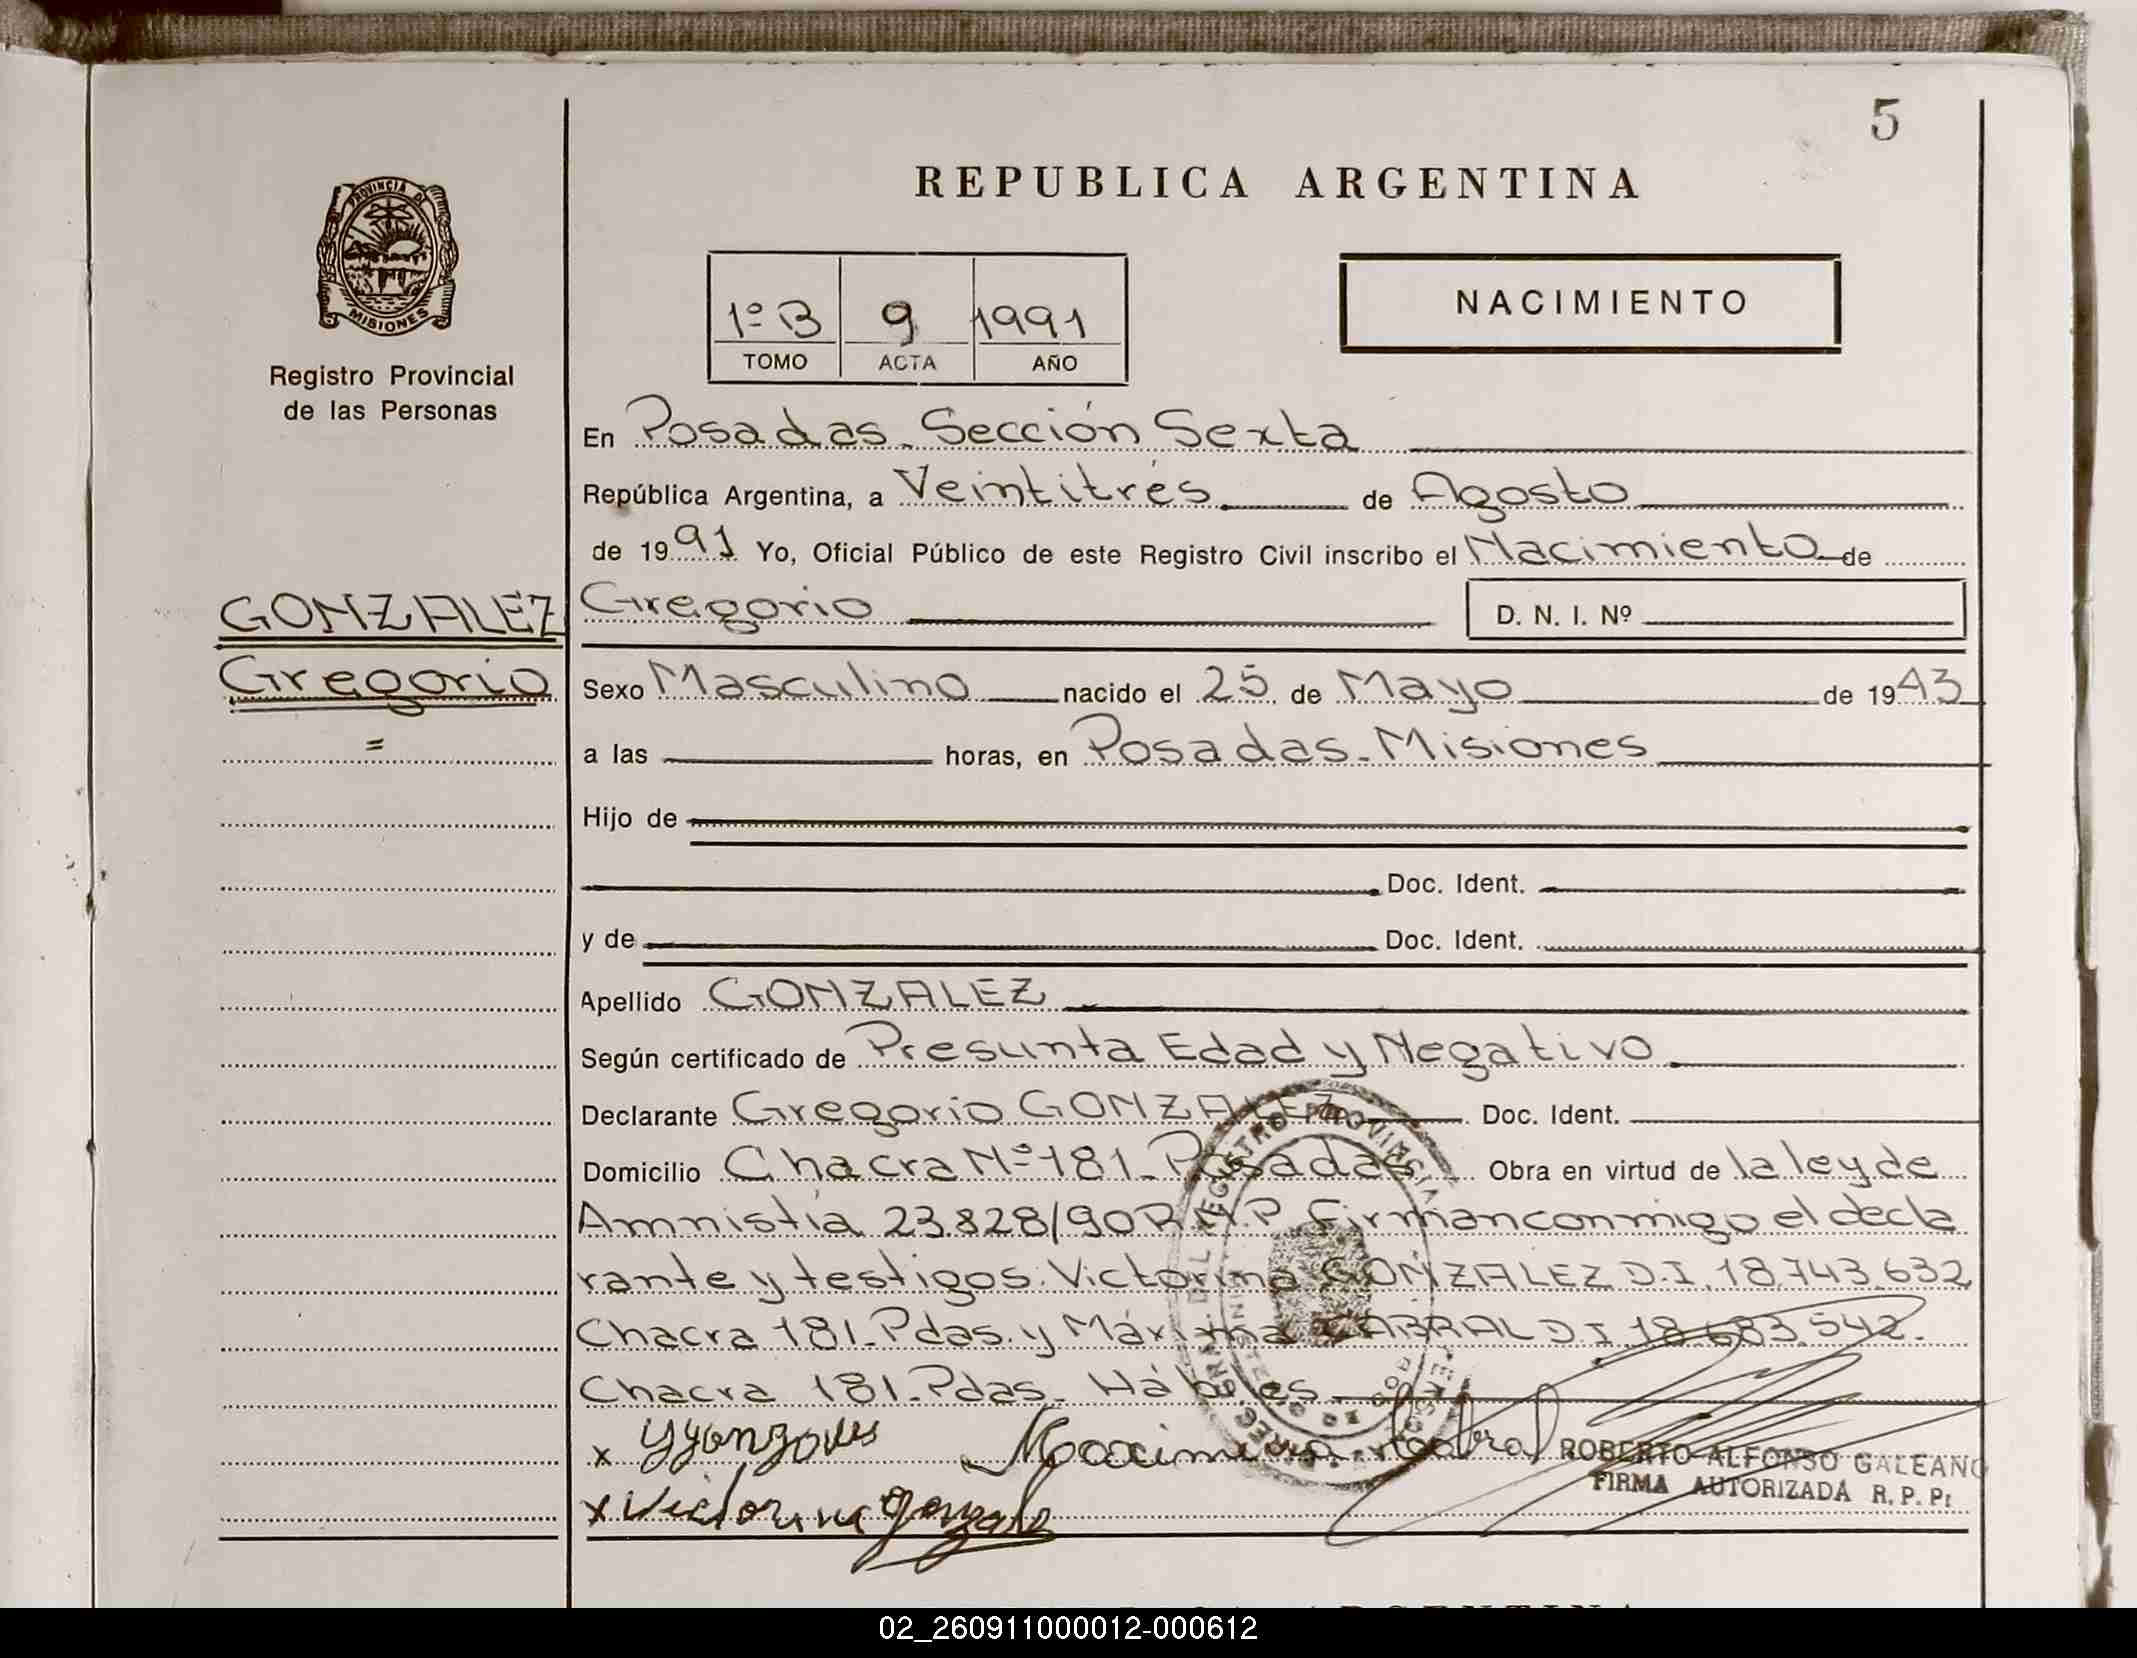 5
REPUBLICA ARGENTINA
PROVINCIA DE
MISIONES
Registro Provincial
de las Personas
1º B 9 1991
TOMO ACTA AÑO
NACIMIENTO
En Posadas. Sección Sexta
República Argentina, a Veintitrés de Agosto
de 1991 Yo, Oficial Público de este Registro Civil inscribo el Nacimiento de
GONZALEZ
Gregorio
=
Gregorio D. N. I. Nº
Sexo Masculino nacido el 25 de Mayo de 1943
a las horas, en Posadas. Misiones
Hijo de
Doc. Ident.
y de Doc. Ident.
Apellido GONZALEZ
Según certificado de Presunta Edad y Negativo
Declarante Gregorio GONZALEZ Doc. Ident.
Domicilio Chacra Nº 181. Posadas Obra en virtud de la ley de
Amnistía 23.828/90 Firman conmigo el decla
rante y testigos: Victorina GONZALEZ D.I. 18.743.632
Chacra 181. Pdas. y Máxima CABRAL D.I. 18.683.542.
Chacra 181. Pdas. Hábiles
x Maximina Cabral
x Victorina Gonzale
ROBERTO ALFONSO GALEANO
FIRMA AUTORIZADA R. P. P.
REGISTRO PROVINCIAL
02_260911000012-000612